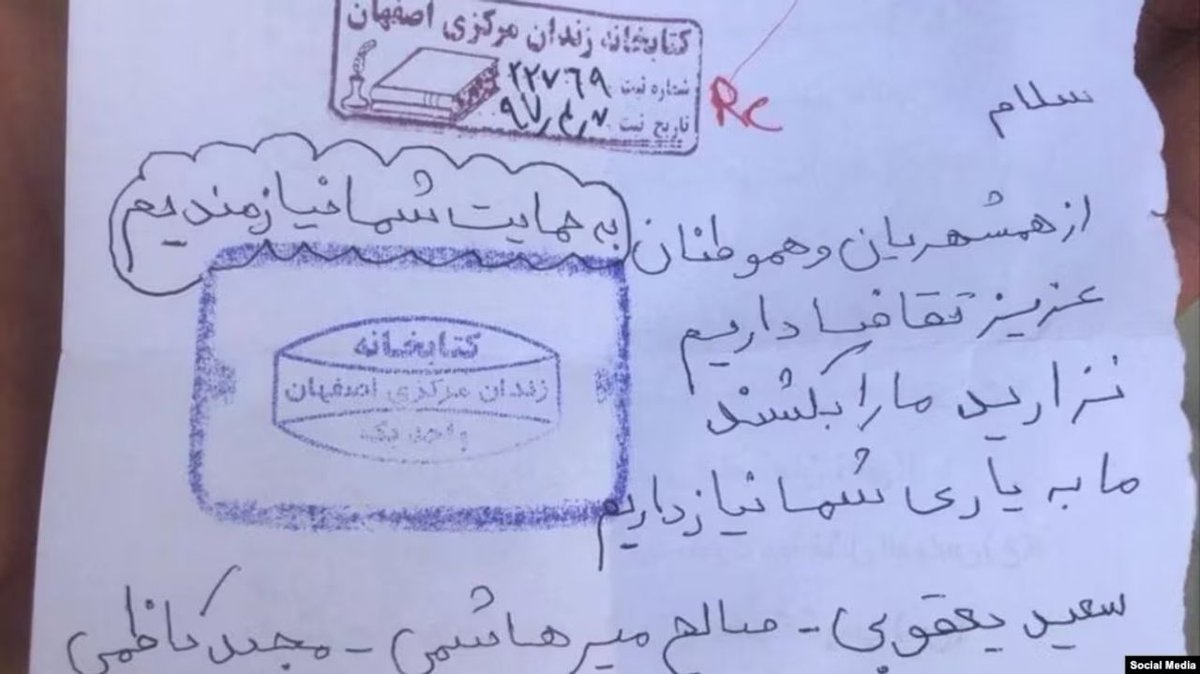 کتابخانه زندان مرکزی اصفهان
شماره ثبت ۲۲۷۶۹
تاریخ ثبت ۹۷٫۴٫۲
RC
سلام
از همشهریان و هموطنان به حمایت شما نیازمندیم
عزیز تقاضا داریم
نزارید ما را بکشند
ما به یاری شما نیاز داریم
کتابخانه
زندان مرکزی اصفهان
واحد یک
سعید یعقوبی - صالح میرهاشمی - مجید کاظمی
Social Media